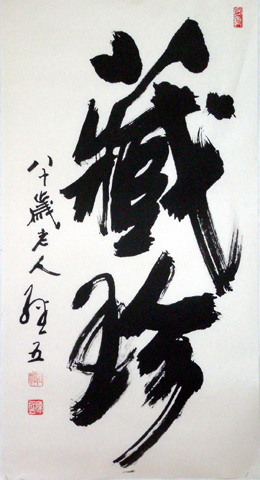 藏珍
八十歲老人經五